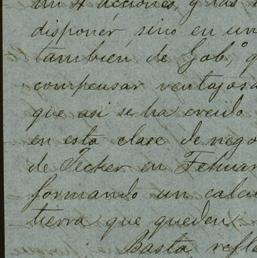 en 4 acciones, y las
disponer, sino en un
también de Gob.º q
compensar ventajosa
que así se ha creido
en esta clase de nego
de Tecker en Tehuan
formando un calcu
tierra que queden
Basta refle